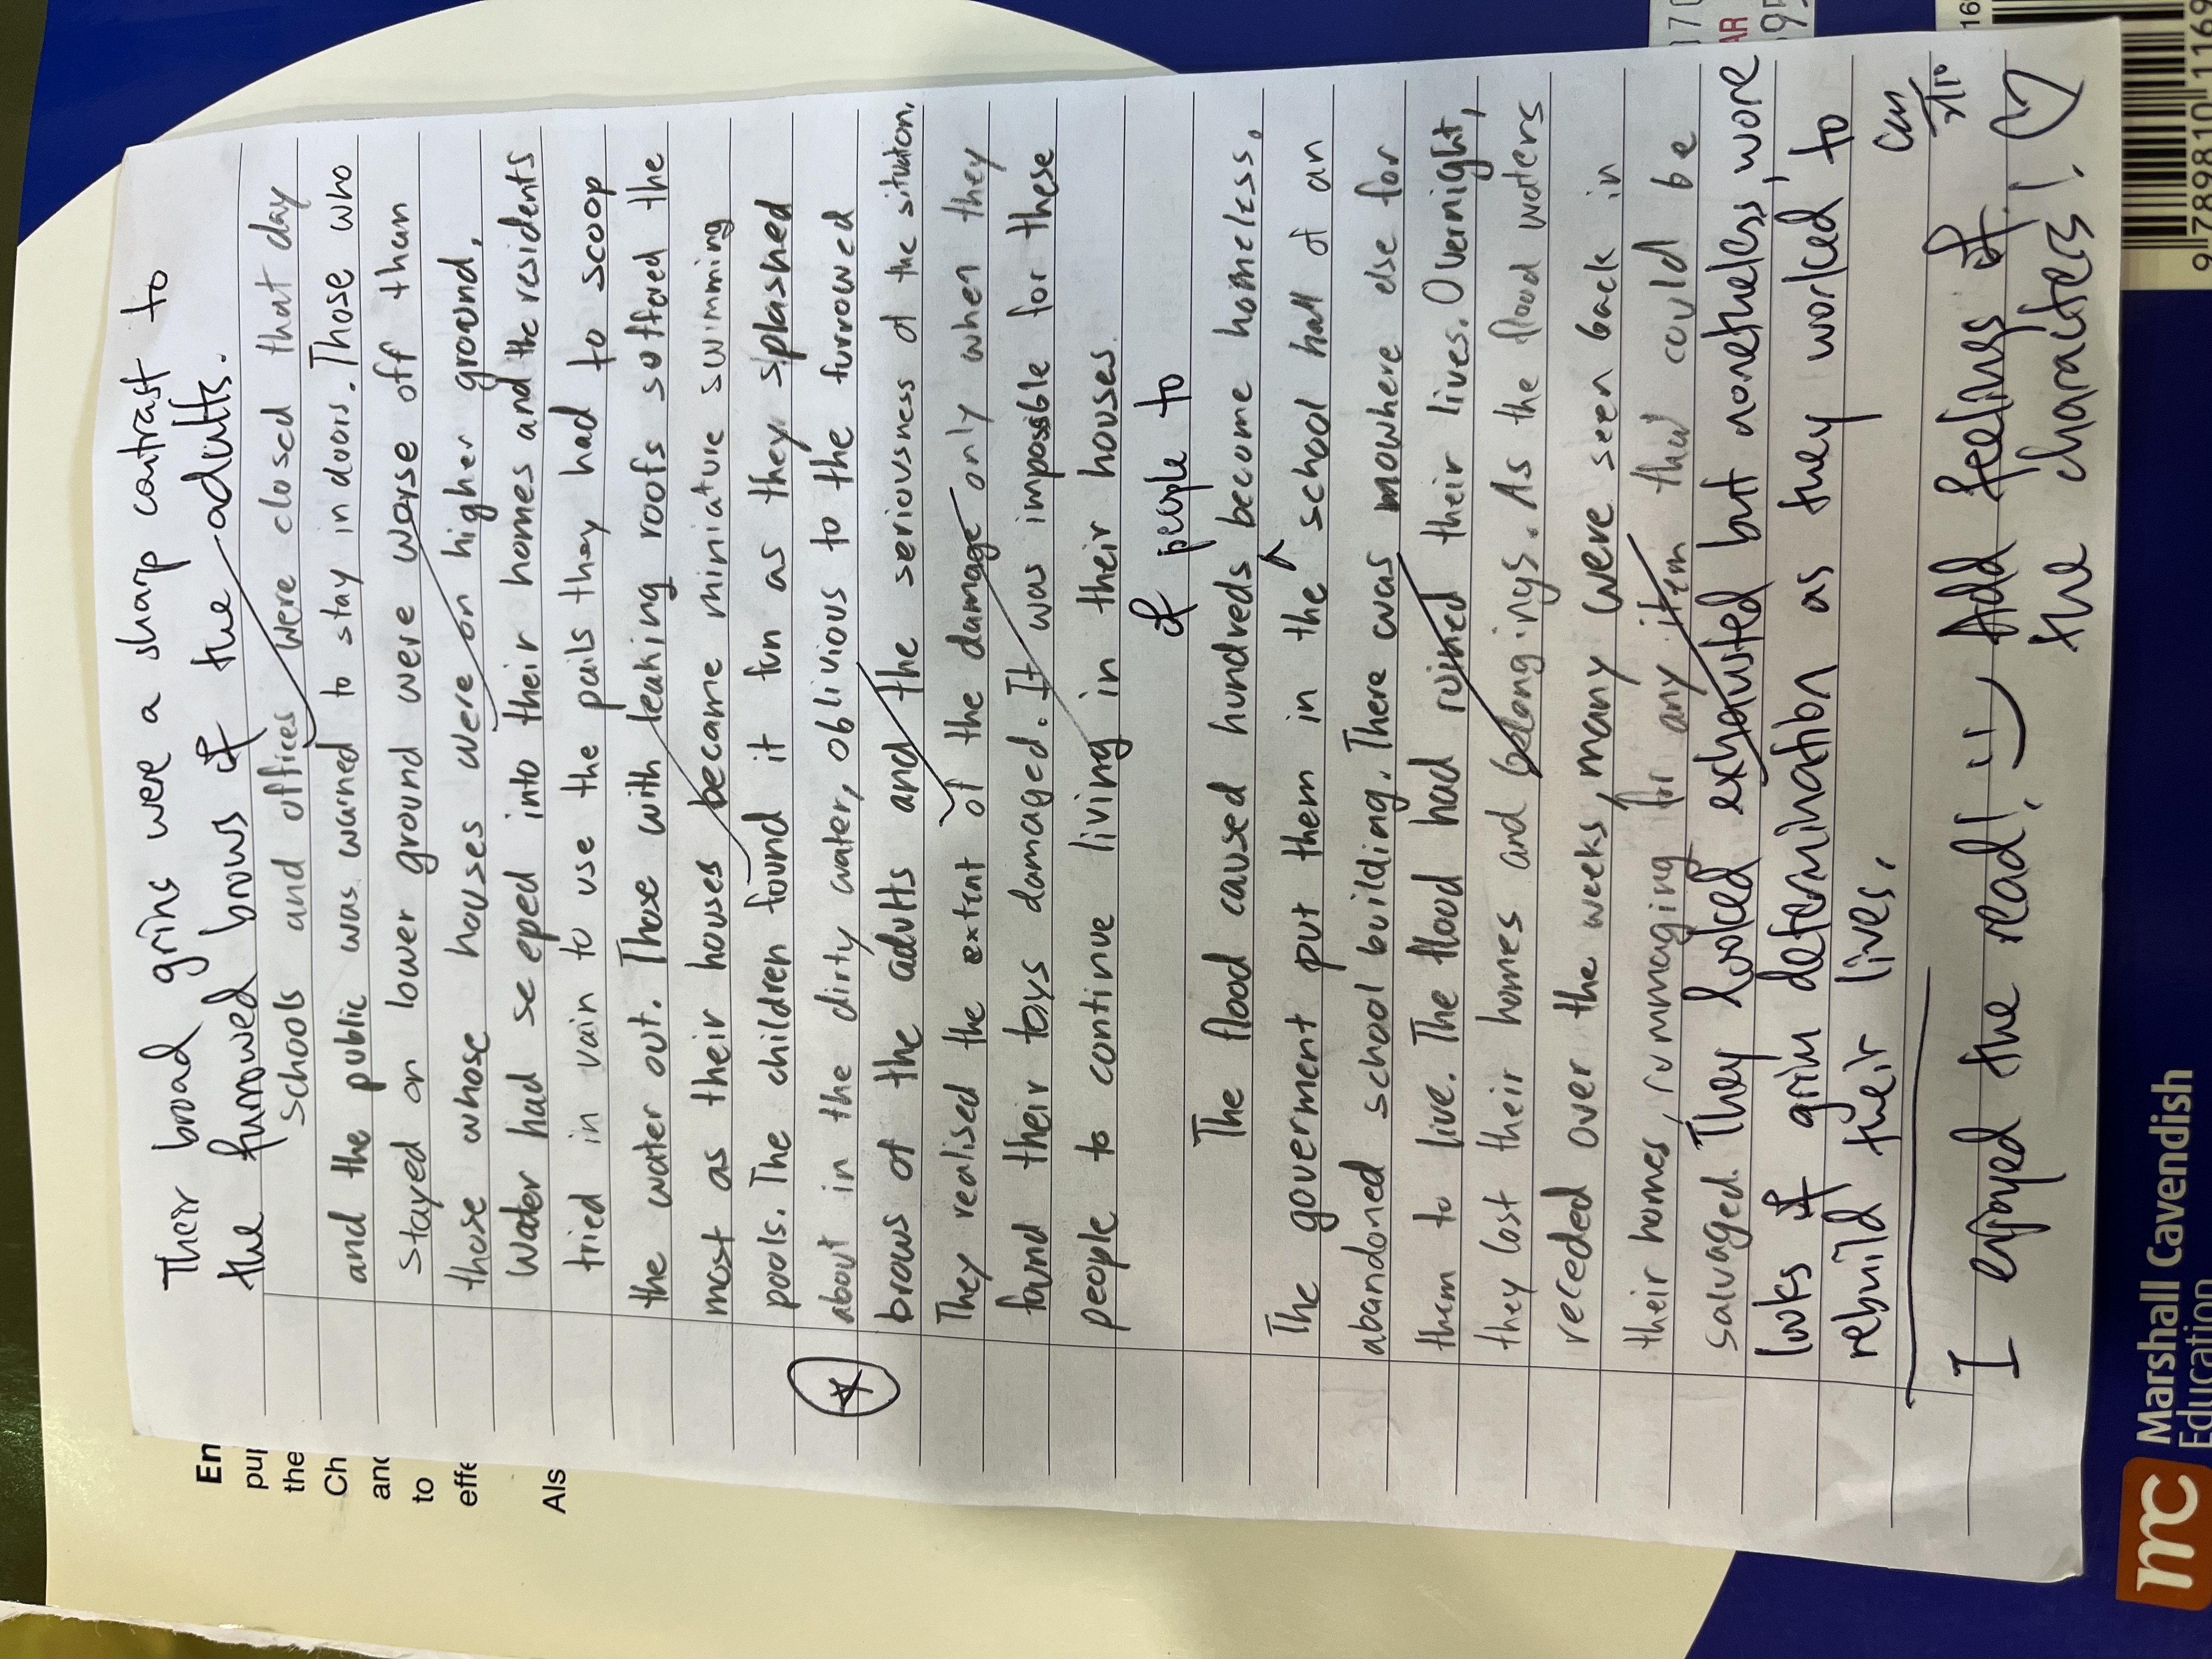 Their broad grins were a sharp contrast to
the furrowed brows of the adults.
Schools and offices were closed that day
and the public was warned to stay in doors. Those who
stayed on lower ground were worse off than
those whose houses were on higher ground.
Water had seeped into their homes and the residents
tried in vain to use the pails they had to scoop
the water out. Those with leaking roofs suffered the
most as their houses became miniature swimming
pools. The children found it fun as they splashed
about in the dirty water, oblivious to the furrowed
brows of the adults and the seriousness of the situation.
They realised the extent of the damage only when they
found their toys damaged. It was impossible for these
people to continue living in their houses.
of people to
The flood caused hundreds become homeless.
The government put them in the school hall of an
abandoned school building. There was nowhere else for
them to live. The flood had ruined their lives. Overnight,
they lost their homes and belongings. As the flood waters
receded over the weeks, many were seen back in
their homes, rummaging for any item that could be
salvaged. They looked exhausted but nonetheless, wore
looks of grim determination as they worked to
rebuild their lives.
I enjoyed the read! Add feelings of
the characters!
En
pu
the
Ch
and
to
effe
Als
mc
Marshall Cavendish
Education
AR
16
9 789810 1169